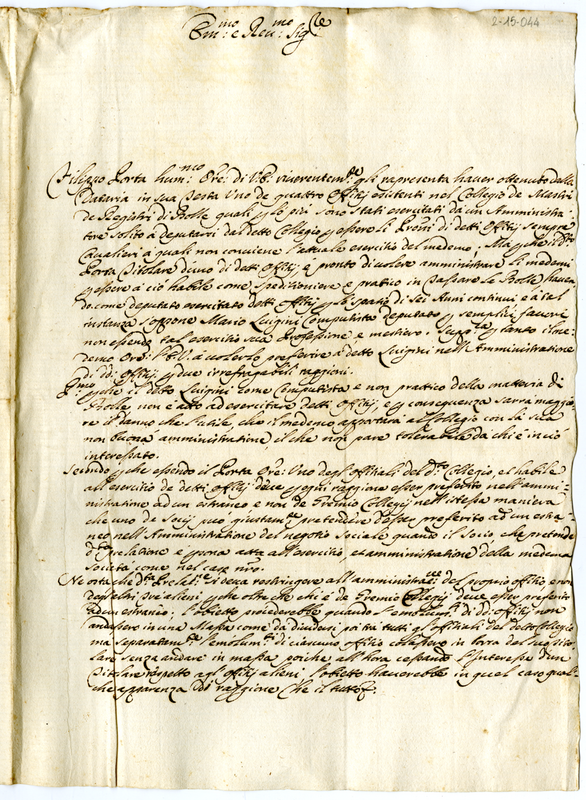 2-15-044
Em:mo e Reu:mo Sig:re
Filippo Porta hum:mo Ore: di V.E: riuerentem:te gli rapresenta hauer ottenuto dalla
Dataria in sua Testa Uno de quattro Offitij esistenti nel Collegio de Mastri
de Registri di Bolle quali p lo più sono stati esercitati da un Amministra-
tore solito à deputarsi da detto Collegio p essere li Proñi di detti Offitij sempre
Caualieri à quali non conuiene l'attuale esercitio del medemo, Ma p che il d:o
Porta Titolare d'uno di detti Offitij è pronto di uolere amministrare li medemi
p essere à ciò habile come speditioniere e prattico in passare le Bolle hauen-
do come deputato esercitato detti Offitij p lo spatio di Sei Anni continui e à tal
instanza s'oppone Mario Luigini Computista Deputato p semplici fauori
non essendo tal esercitio sua Professione e mestiere. Supp:ca p tanto il me-
demo Ore: V.E. à uolerlo preferire à detto Luigini nell'Amministratione
di dd: Offitij p due irrefragabili raggioni.
P:mo p che il detto Luigini come Computista e non prattico della matteria di
Bolle, non è atto ad esercitare detti Offitij, e p consequenza sarrà maggio-
re il danno che l'utile, che il medemo apportarà al Collegio con la sua
non buona amministratione, il che non pare tolerabile da chi è in ciò
interessato.
Secundo p che essendo il Porta Ore: Uno degl'Offitiali del d:o Collegio, et habile
all'esercitio de detti Offitij deue p ogni raggione esser preferito nell'ammi-
nistratione ad un estraneo e non de Gremio Collegij nell'istessa maniera
che uno de Socij può giustam:te pretendere d'esser preferito ad un estra-
neo nell'Amministratione del negotio Sociale quando il Socio, che pretende
d:a prelatione è p sona atta all'esercitio, et amministratione della medema
Società come nel caso nro.
Ne osta che d:a Prelat:ne si deua restringere all'amministrat:ne del proprio offitio, e non
degl'altri Alieni, p che oltre che chi è de Gremio Collegij deue esser preferito
ad un estraneo; l'obietto procederebbe quando l'emolum:ti di dd: Offitij non
andassero in una Massa come da diuidersi poi trà tutti gl'Offitiali del detto Collegio
ma separatam:te l'emolum:ti di ciascuno offitio colassero in borsa del suo tito-
lare senza andare in massa poiche all'hora cessando l'interesse d'un
Titolare rispetto agl'Offitij alieni l'obietto hauerebbe in quel caso qual-
che apparenza di raggione Che il tutto